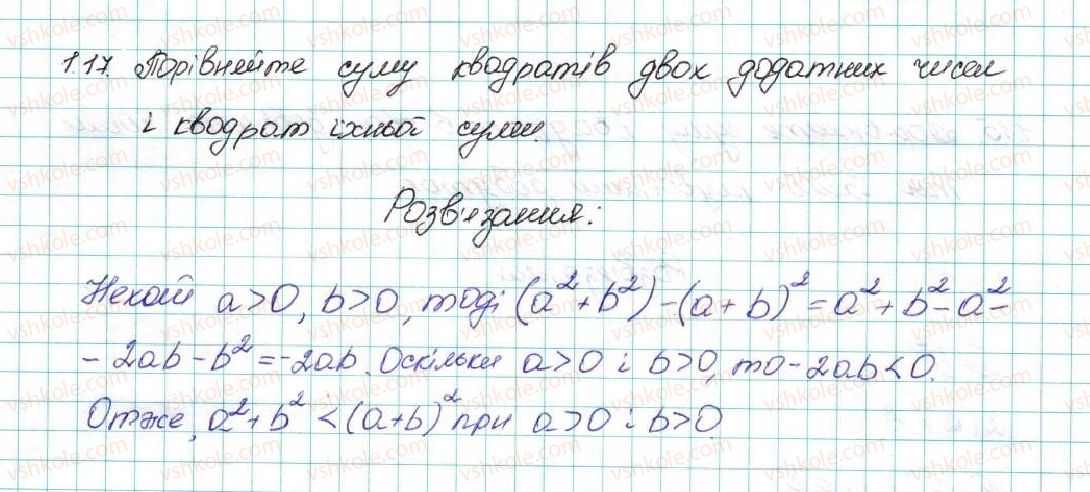 1.17. Порівняйте суму квадратів двох додатних чисел
і квадрат їхньої суми.
Розв'язання:
Нехай a>0, b>0, тоді (a²+b²)-(a+b)²=a²+b²-a²-
-2ab-b²=-2ab. Оскільки a>0 і b>0, то -2ab<0.
Отже, a²+b²<(a+b)² при a>0 і b>0.